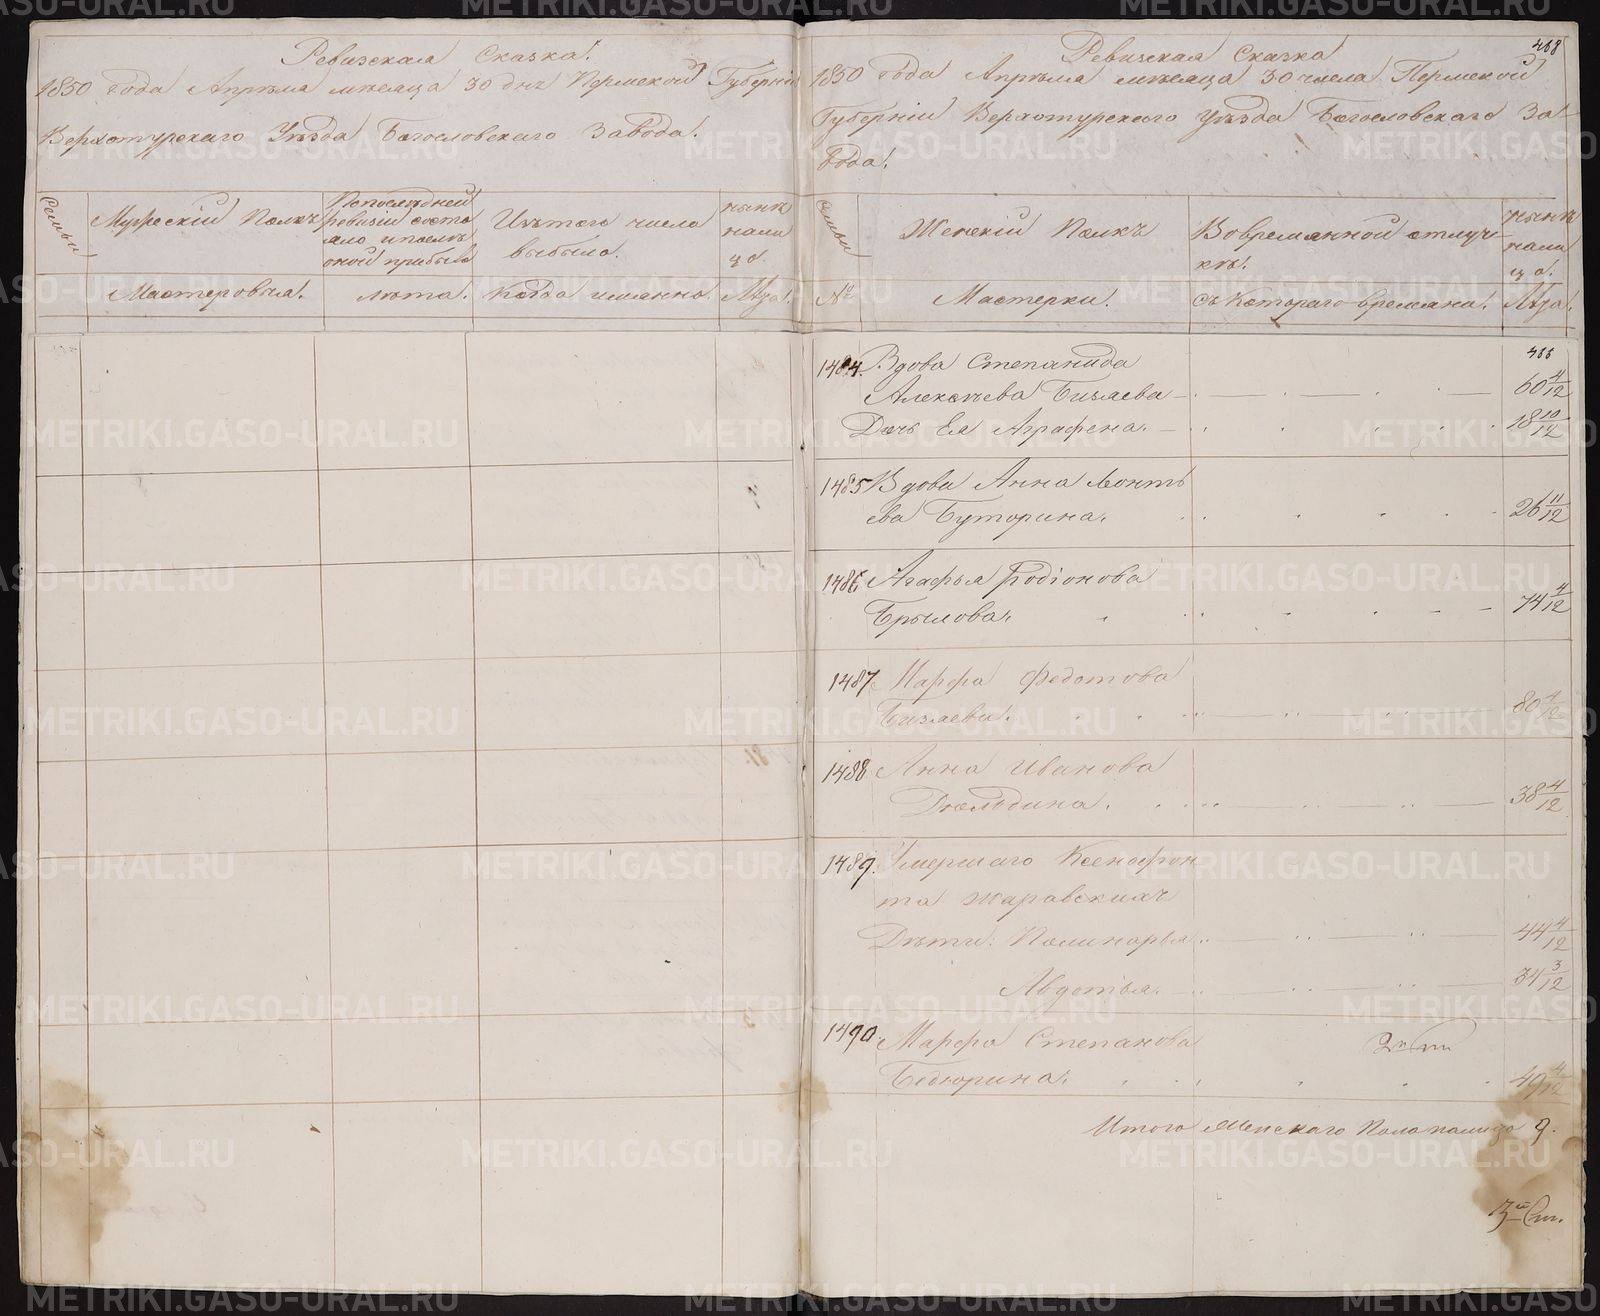 Ревизская Сказка.
1850 года Апреля месяца 30 днъ Пермской Губерніи
Верхотурскаго Уѣзда Богословскаго Завода.
Семьи
Мужескій Полкъ
По последней ревизіи состояло и после оной прибыло
Изъ того числа выбыло.
нынѣ нали цо
Мастеровыя.
лѣта.
Когда имянно.
Лѣта.
468
Ревизская Сказка
1850 года Апреля месяца 30 числа Пермской
Губерніи Верхотурскаго Уѣзда Богословскаго За-
вода.
Семьи
Женскій Полкъ
Вовременной отлуч-
кѣ.
нынѣ нали цо.
№
Мастерки.
съ Котораго времяни.
Лѣта.
466
1484. Вдова Степанида
Алексѣева Бизяева 60 4/12
Дочь Ея Аграфена. 18 10/12
1485 Вдова Анна Леонть
ева Буторина. 26 11/12
1486 Агафья Родіонова
Брылова. 74 4/12
1487 Марфа Федотова
Бизяева. 80 4/12
1488 Анна Иванова
Дюльдина. 38 4/12
1489. Умершаго Ксенофон
та Жаравскихъ
Дѣти: Полинарья 44 4/12
Авдотья. 34 3/12
1490. Марфа Степанова
Бедюрина. 49 4/12
Итого Женскаго Пола налицо 9.
METRIKI.GASO-URAL.RU